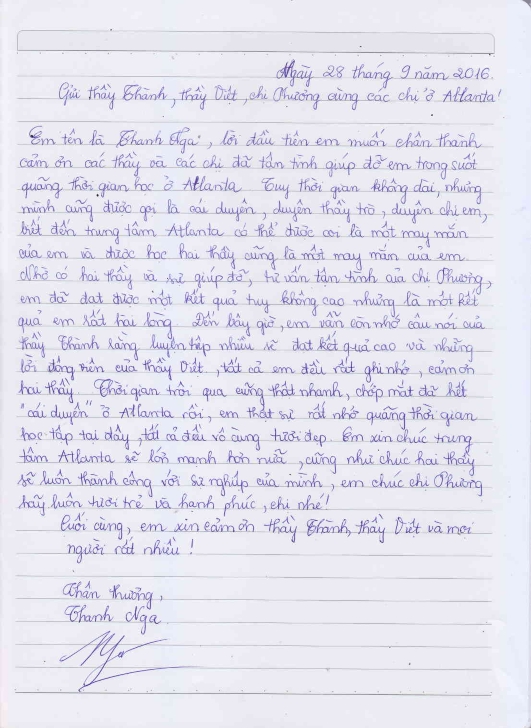 Ngày 28 tháng 9 năm 2016.
Gửi thầy Thành, thầy Viết, chị Phương cùng các chị ở Atlanta!
Em tên là Thanh Nga, lời đầu tiên em muốn chân thành
cảm ơn các thầy và các chị đã tận tình giúp đỡ em trong suốt
quãng thời gian học ở Atlanta. Tuy thời gian không dài, nhưng
mình cũng được gọi là cái duyên, duyên thầy trò, duyên chị em,
biết đến trung tâm Atlanta có thể được coi là một may mắn
của em và được học hai thầy cũng là một may mắn của em.
Nhờ có hai thầy và sự giúp đỡ, tư vấn tận tình của chị Phương,
em đã đạt được một kết quả tuy không cao nhưng là một kết
quả em rất hài lòng. Đến bây giờ, em vẫn còn nhớ câu nói của
thầy Thành rằng luyện tệp nhiều sẽ đạt kết quả cao và những
lời động viên của thầy Viết, tất cả em đều rất ghi nhớ, cảm ơn
hai thầy. Thời gian trôi qua cũng thật nhanh, chớp mắt đã hết
"cái duyên" ở Atlanta rồi, em thật sự rất nhớ quãng thời gian
học tập tại đây, tất cả đều vô cùng tươi đẹp. Em xin chúc trung
tâm Atlanta sẽ lớn mạnh hơn nữa, cũng như chúc hai thầy
sẽ luôn thành công với sự nghiệp của mình, em chúc chị Phương
hãy luôn tươi trẻ và hạnh phúc, chị nhé!
Cuối cùng, em xin cảm ơn thầy Thành, thầy Viết và mọi
người rất nhiều!
Thân thương,
Thanh Nga
Nga